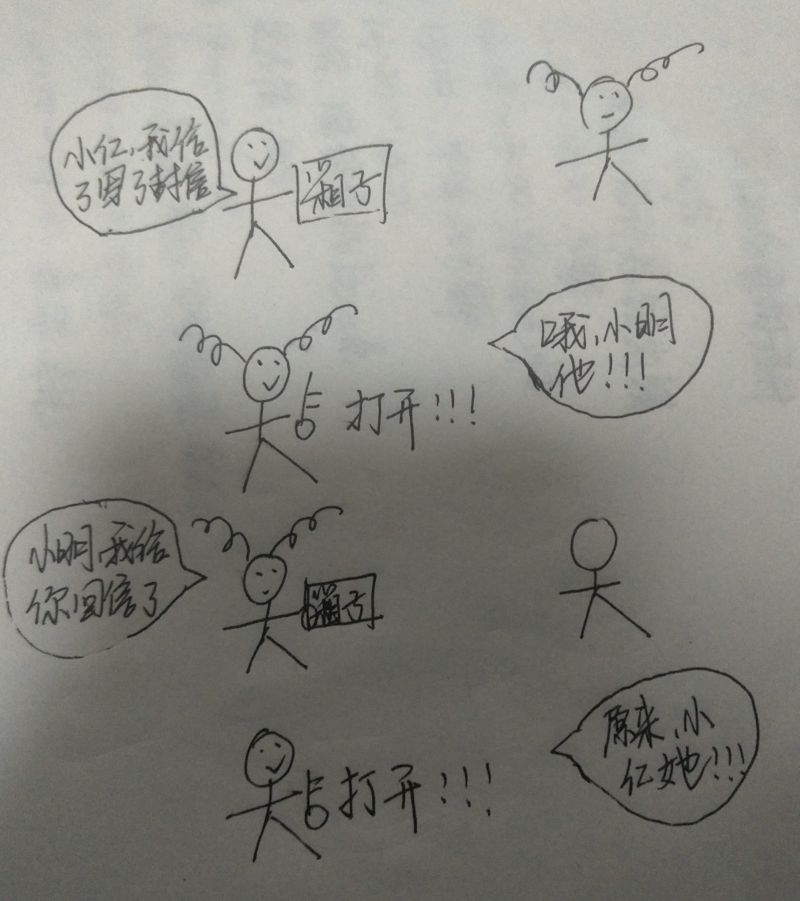 小红,我给
了写了封信
箱子
哦,小明
他!!!
打开!!!
小明,我给
你回信了
箱子
原来,小
红她!!!
打开!!!